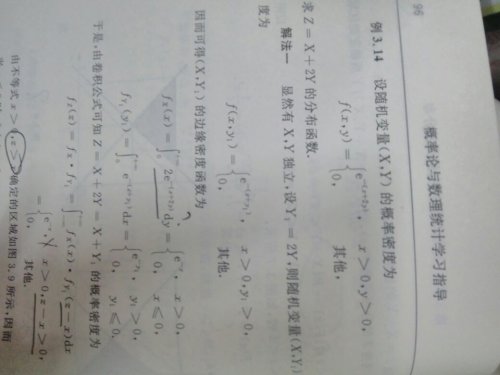 96 概率论与数理统计学习指导
例 3.14 设随机变量(X,Y)的概率密度为
f(x,y) = { e^{-(x+2y)}, x>0,y>0,
0, 其他,
求 Z = X + 2Y 的分布函数.
解法一 显然有 X,Y 独立,设 Y₁ = 2Y,则随机变量(X,Y₁)
度为
f(x,y₁) = { e^{-(x+y₁)}, x>0,y₁>0,
0, 其他.
因而可得(X,Y₁)的边缘密度函数为
f_X(x) = ∫ 2e^{-(x+2y)}dy = { e^{-x}, x>0,
0, x≤0,
f_{Y₁}(y₁) = ∫ e^{-(x+y₁)}dx = { e^{-y₁}, y₁>0,
0, y₁≤0.
于是,由卷积公式可知 Z = X + 2Y = X + Y₁ 的概率密度为
f_Z(z) = f_X · f_{Y₁} = ∫ f_X(x) · f_{Y₁}(z−x)dx
= { e^{-z}, x>0,z−x>0,
0, 其他.
由不等式 x>0,z>x 确定的区域如图 3.9 所示,因而